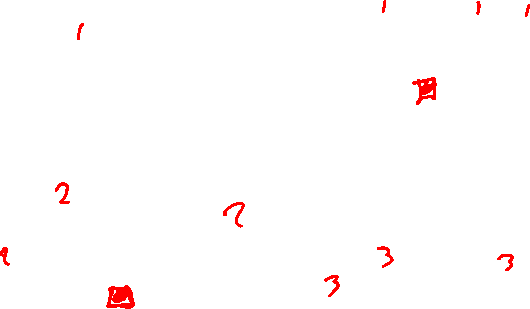 1 1 1
1
2
2
3
3
3